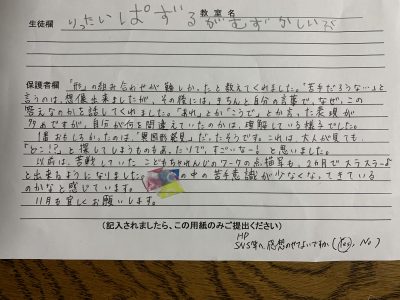 教室名
生徒欄
りったいぱずるがむずかしいです
保護者欄 「形」の組み合わせが難しか、たと教えてくれました。"苦手だろうな…"と
言うのは、想像出来ましたが、その後には、きちんと自分の言葉で、なぜ、この
答えなのかを話してくれました。「あれ」とか「こうで」とか言った表現が
多めですが、自分が何を間違えていたのかは、理解している様子でした。
1番おもしろか、たのは、「異図形発見」だ、たそうです。これは、大人が見ても、
「どこ!?」と探してしまうものもあ、たりで、"すごいな~!"と思いました。
以前は、苦戦していたこどもちゃれんじのワークの点描写も、2ヵ月でスラスラ~と
と出来るようになりました。の中の苦手意識が少なくな、てきている
のかなと感じています。
11月も宜しくお願いします。
(記入されましたら、この用紙のみご提出ください)
HP
SNS等へ感想のせてよいですか (Yes, No)